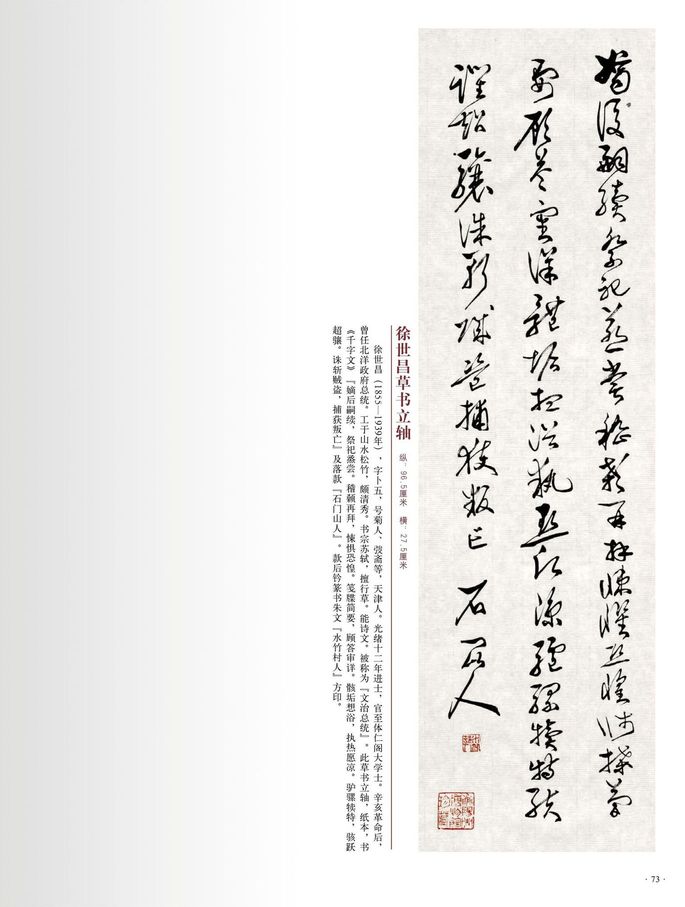 嫡後嗣續祭祀蒸嘗稽顙再拜悚懼恐惶牋牒簡
要顧答審詳骸垢想浴執熱願涼驢騾犢特駭
躍超驤誅斬賊盜捕獲叛亡 石門山人
徐世昌草书立轴
纵：96.5厘米 横：27.5厘米
徐世昌（1855—1939年），字卜五，号菊人、弢斋等，天津人。光绪十二年进士，官至体仁阁大学士。辛亥革命后，
曾任北洋政府总统。工于山水松竹，颇清秀。书宗苏轼，擅行草。能诗文。被称为『文治总统』。此草书立轴，纸本，书
《千字文》『嫡后嗣续，祭祀蒸尝。稽颡再拜，悚惧恐惶。笺牒简要，顾答审详。骸垢想浴，执热愿凉。驴骡犊特，骇跃
超骧。诛斩贼盗，捕获叛亡』及落款『石门山人』。款后钤篆书朱文『水竹村人』方印。
· 73 ·